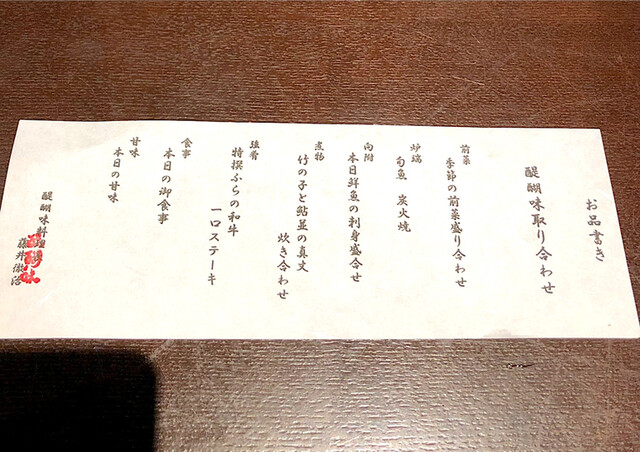 お品書き
醍醐味取り合わせ
前菜
季節の前菜盛り合わせ
炉端
旬魚 炭火焼
向附
本日鮮魚の刺身盛合せ
煮物
竹の子と鮎並の真丈
炊き合わせ
強肴
特撰ふらの和牛
一口ステーキ
食事
本日の御食事
甘味
本日の甘味
醍醐味料理
藤井徹治